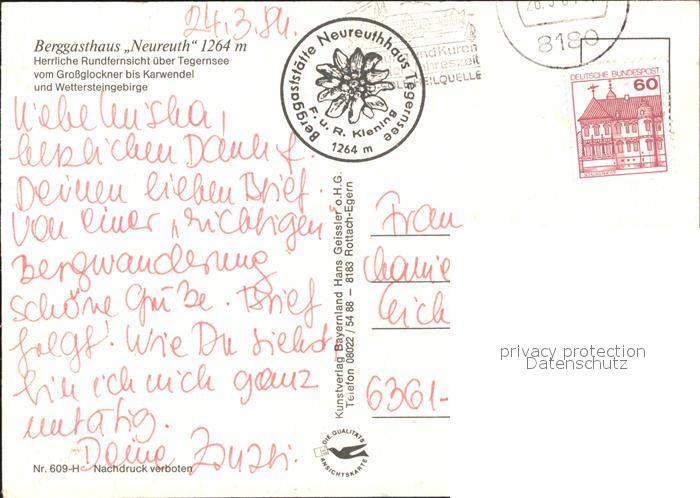 24.3.84.
Berggasthaus „Neureuth" 1264 m
Herrliche Rundfernsicht über Tegernsee
vom Großglockner bis Karwendel
und Wettersteingebirge
herzlichen Dank f.
Deinen lieben Brief.
Von einer „richtigen"
Bergwanderung
schöne Grüße. Brief
folgt! Wie Du siehst
bin ich nich ganz
untätig.
Deine
Nr. 609-H Nachdruck verboten
Berggaststätte Neureuthhaus Tegernsee
F. u. R. Kiening
1264 m
und Kuren
8180
DEUTSCHE BUNDESPOST
60
Kunstverlag Bayernland Hans Geissler o.H.G.
Telefon 08022 / 54 88 – 8183 Rottach-Egern
DIE QUALITÄTS
ANSICHTSKARTE
Frau
6361-
privacy protection
Datenschutz